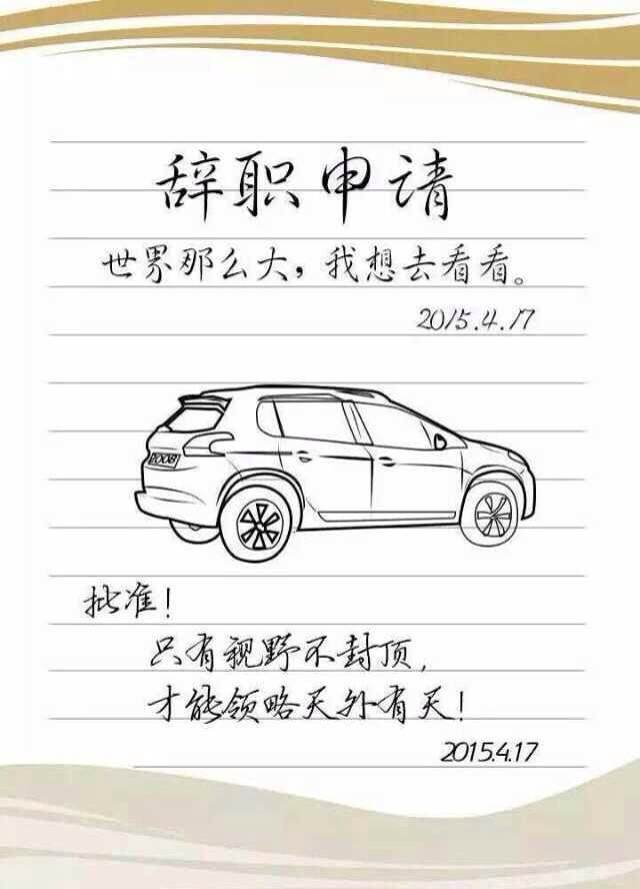 辞职申请
世界那么大，我想去看看。
2015.4.17
2008
批准！
只有视野不封顶，
才能领略天外有天！
2015.4.17